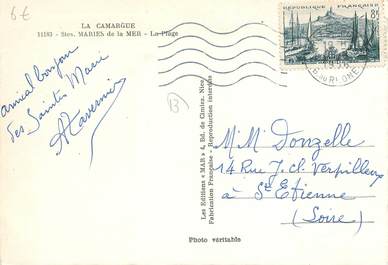 6€
LA CAMARGUE
11183 - Stes. MARIES de la MER - La Plage
amical bonjour
des Saintes Marie
ATavernier
13
Les Editions « MAR » 4, Bd. de Cimiez, Nice
Fabrication Française - Reproduction interdite
REPUBLIQUE FRANÇAISE
8F
B. DU RHONE
M M Donzelle
14 Rue J. cl. Verpilleux
à St Etienne
(Loire)
Photo véritable